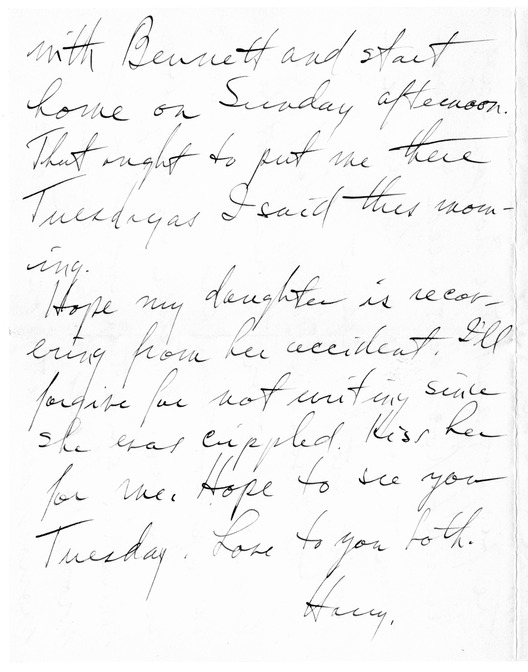 with Bennett and start
home on Sunday afternoon.
That ought to put me there
Tuesday as I said this morn-
ing.
Hope my daughter is recov-
ering from her accident. I'll
forgive for not writing since
she was crippled. Kiss her
for me. Hope to see you
Tuesday. Love to you both.
Harry.